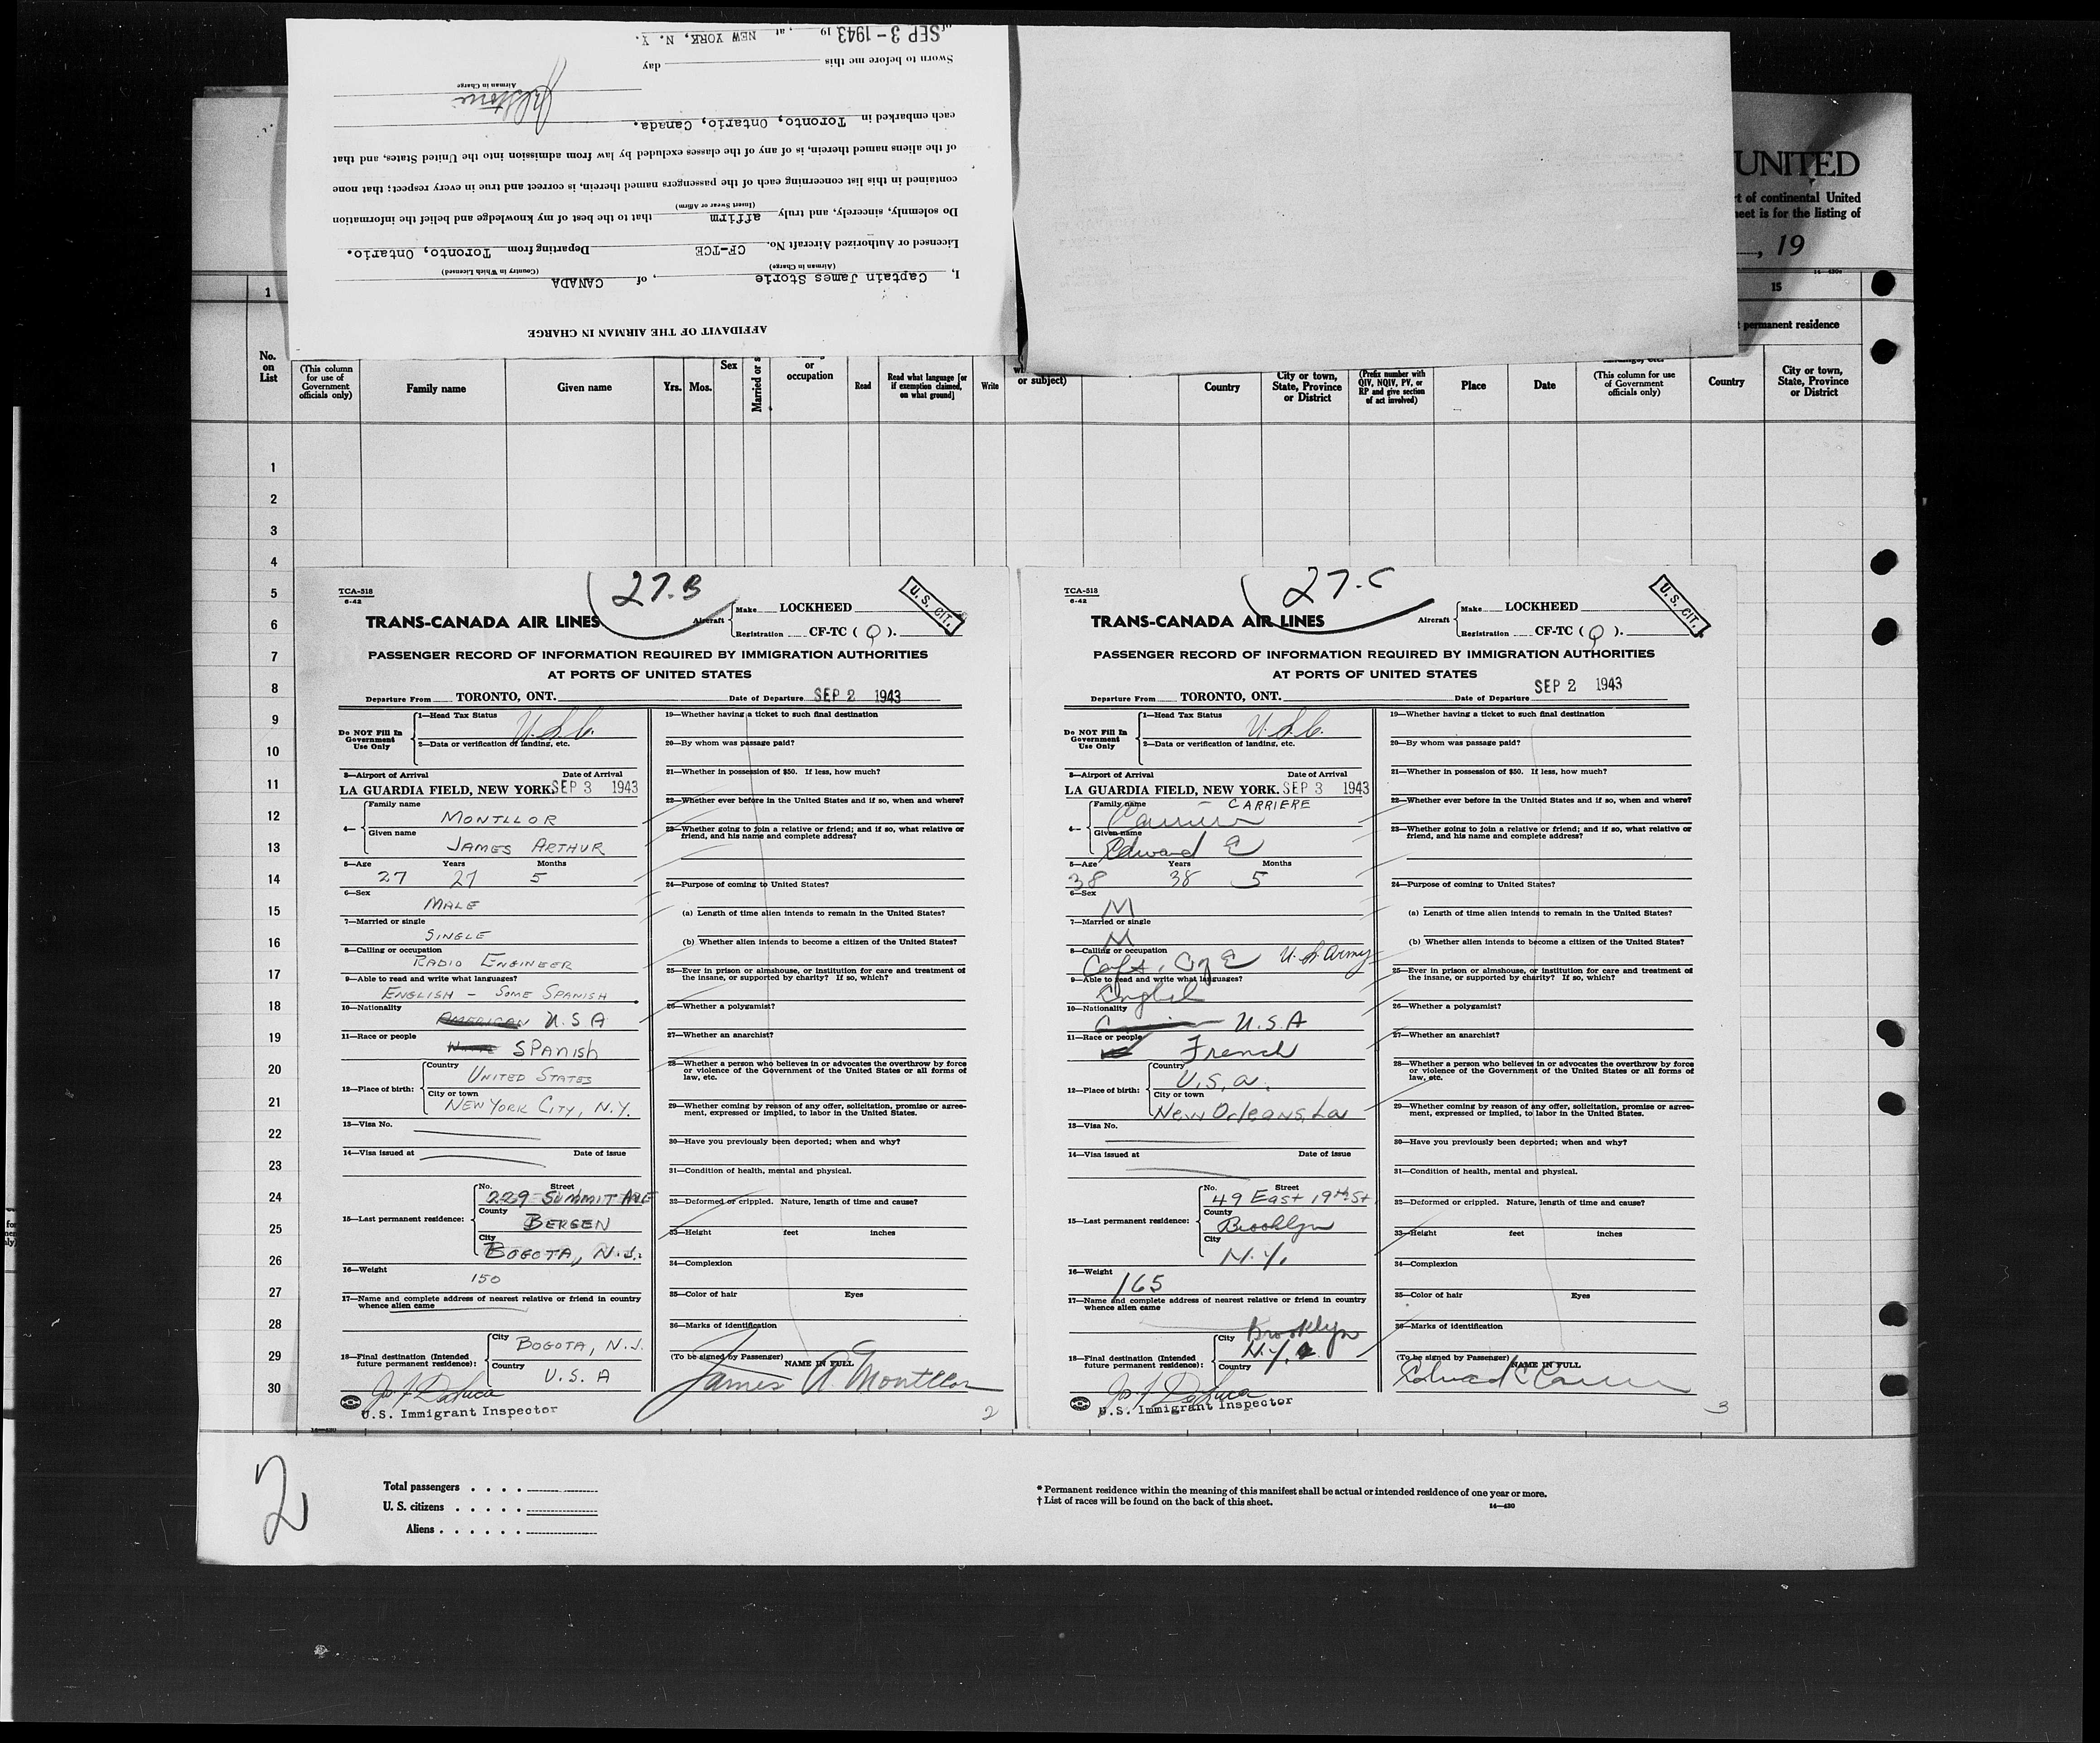 SEP 3 - 1943 19 , at NEW YORK, N. Y.
Sworn to before me this day
Airman in Charge
each embarked in Toronto, Ontario, Canada.
of the aliens named therein, is of any of the classes excluded by law from admission into the United States, and that
contained in this list concerning each of the passengers named therein, is correct and true in every respect; that none
(Insert Swear or Affirm)
Do solemnly, sincerely, and truly affirm that to the best of my knowledge and belief the information
Licensed or Authorized Aircraft No. CF-TCE Departing from Toronto, Ontario.
(Airman in Charge) (Country in Which Licensed)
I, Captain James Storie, of CANADA
AFFIDAVIT OF THE AIRMAN IN CHARGE
UNITED
rt of continental United
heet is for the listing of
, 19
14-430a
1
15
permanent residence
No. on List
(This column for use of Government officials only)
Family name
Given name
Yrs. Mos.
Sex
Married or s
or occupation
Read
Read what language [or if exemption claimed, on what ground]
Write
or subject)
Country
City or town, State, Province or District
(Prefix number with QIV, NQIV, PV, or RP and give section of act involved)
Place
Date
(This column for use of Government officials only)
Country
City or town, State, Province or District
1
2
3
4
5
6
7
8
9
10
11
12
13
14
15
16
17
18
19
20
21
22
23
24
25
26
27
28
29
30
TCA-518
6-42
27.B
U. S. CIT.
TRANS-CANADA AIR LINES
Aircraft Make LOCKHEED
Registration CF-TC ( Q ).
PASSENGER RECORD OF INFORMATION REQUIRED BY IMMIGRATION AUTHORITIES
AT PORTS OF UNITED STATES
Departure From TORONTO, ONT. Date of Departure SEP 2 1943
Do NOT Fill In Government Use Only
1—Head Tax Status U.S.C.
2—Data or verification of landing, etc.
3—Airport of Arrival Date of Arrival
LA GUARDIA FIELD, NEW YORK. SEP 3 1943
4— Family name MONTLLOR
Given name JAMES ARTHUR
5—Age Years Months
27 27 5
6—Sex
MALE
7—Married or single
SINGLE
8—Calling or occupation
RADIO ENGINEER
9—Able to read and write what languages?
ENGLISH - SOME SPANISH
10—Nationality
AMERICAN U.S A
11—Race or people
SPANISH
12—Place of birth: Country
UNITED STATES
City or town
NEW YORK CITY, N.Y.
13—Visa No.
14—Visa issued at Date of issue
15—Last permanent residence: No. Street
229 SUMMIT AVE
County
BERGEN
City
BOGOTA, N.J.
16—Weight
150
17—Name and complete address of nearest relative or friend in country
whence alien came
18—Final destination (Intended future permanent residence): City BOGOTA, N.J.
Country U.S.A
Jo. J. DeLuca
U.S. Immigrant Inspector
19—Whether having a ticket to such final destination
20—By whom was passage paid?
21—Whether in possession of $50. If less, how much?
22—Whether ever before in the United States and if so, when and where?
23—Whether going to join a relative or friend; and if so, what relative or
friend, and his name and complete address?
24—Purpose of coming to United States?
(a) Length of time alien intends to remain in the United States?
(b) Whether alien intends to become a citizen of the United States?
25—Ever in prison or almshouse, or institution for care and treatment of
the insane, or supported by charity? If so, which?
26—Whether a polygamist?
27—Whether an anarchist?
28—Whether a person who believes in or advocates the overthrow by force
or violence of the Government of the United States or all forms of
law, etc.
29—Whether coming by reason of any offer, solicitation, promise or agree-
ment, expressed or implied, to labor in the United States.
30—Have you previously been deported; when and why?
31—Condition of health, mental and physical.
32—Deformed or crippled. Nature, length of time and cause?
33—Height feet inches
34—Complexion
35—Color of hair Eyes
36—Marks of identification
(To be signed by Passenger) NAME IN FULL
James A. Montllor
2
TCA-518
6-42
27-C
U. S. CIT.
TRANS-CANADA AIR LINES
Aircraft Make LOCKHEED
Registration CF-TC ( Q ).
PASSENGER RECORD OF INFORMATION REQUIRED BY IMMIGRATION AUTHORITIES
AT PORTS OF UNITED STATES
Departure From TORONTO, ONT. Date of Departure SEP 2 1943
Do NOT Fill In Government Use Only
1—Head Tax Status U.S.C.
2—Data or verification of landing, etc.
3—Airport of Arrival Date of Arrival
LA GUARDIA FIELD, NEW YORK. SEP 3 1943
4— Family name - CARRIERE
Carriere
Given name
Edward E
5—Age Years Months
38 38 5
6—Sex
M
7—Married or single
M
8—Calling or occupation
Capt. C of E U.S. Army
9—Able to read and write what languages?
English
10—Nationality
U.S.A
11—Race or people
French
12—Place of birth: Country
U.S.A.
City or town
New Orleans, La
13—Visa No.
14—Visa issued at Date of issue
15—Last permanent residence: No. Street
49 East 19th St.
County
Brooklyn
City
N.Y.
16—Weight
165
17—Name and complete address of nearest relative or friend in country
whence alien came
18—Final destination (Intended future permanent residence): City Brooklyn
N.Y.
Country
Jo. J. DeLuca
U.S. Immigrant Inspector
19—Whether having a ticket to such final destination
20—By whom was passage paid?
21—Whether in possession of $50. If less, how much?
22—Whether ever before in the United States and if so, when and where?
23—Whether going to join a relative or friend; and if so, what relative or
friend, and his name and complete address?
24—Purpose of coming to United States?
(a) Length of time alien intends to remain in the United States?
(b) Whether alien intends to become a citizen of the United States?
25—Ever in prison or almshouse, or institution for care and treatment of
the insane, or supported by charity? If so, which?
26—Whether a polygamist?
27—Whether an anarchist?
28—Whether a person who believes in or advocates the overthrow by force
or violence of the Government of the United States or all forms of
law, etc.
29—Whether coming by reason of any offer, solicitation, promise or agree-
ment, expressed or implied, to labor in the United States.
30—Have you previously been deported; when and why?
31—Condition of health, mental and physical.
32—Deformed or crippled. Nature, length of time and cause?
33—Height feet inches
34—Complexion
35—Color of hair Eyes
36—Marks of identification
(To be signed by Passenger) NAME IN FULL
Edward E Carriere
3
2
Total passengers . . . .
U. S. citizens . . . . .
Aliens . . . . . .
* Permanent residence within the meaning of this manifest shall be actual or intended residence of one year or more.
† List of races will be found on the back of this sheet.
14—430